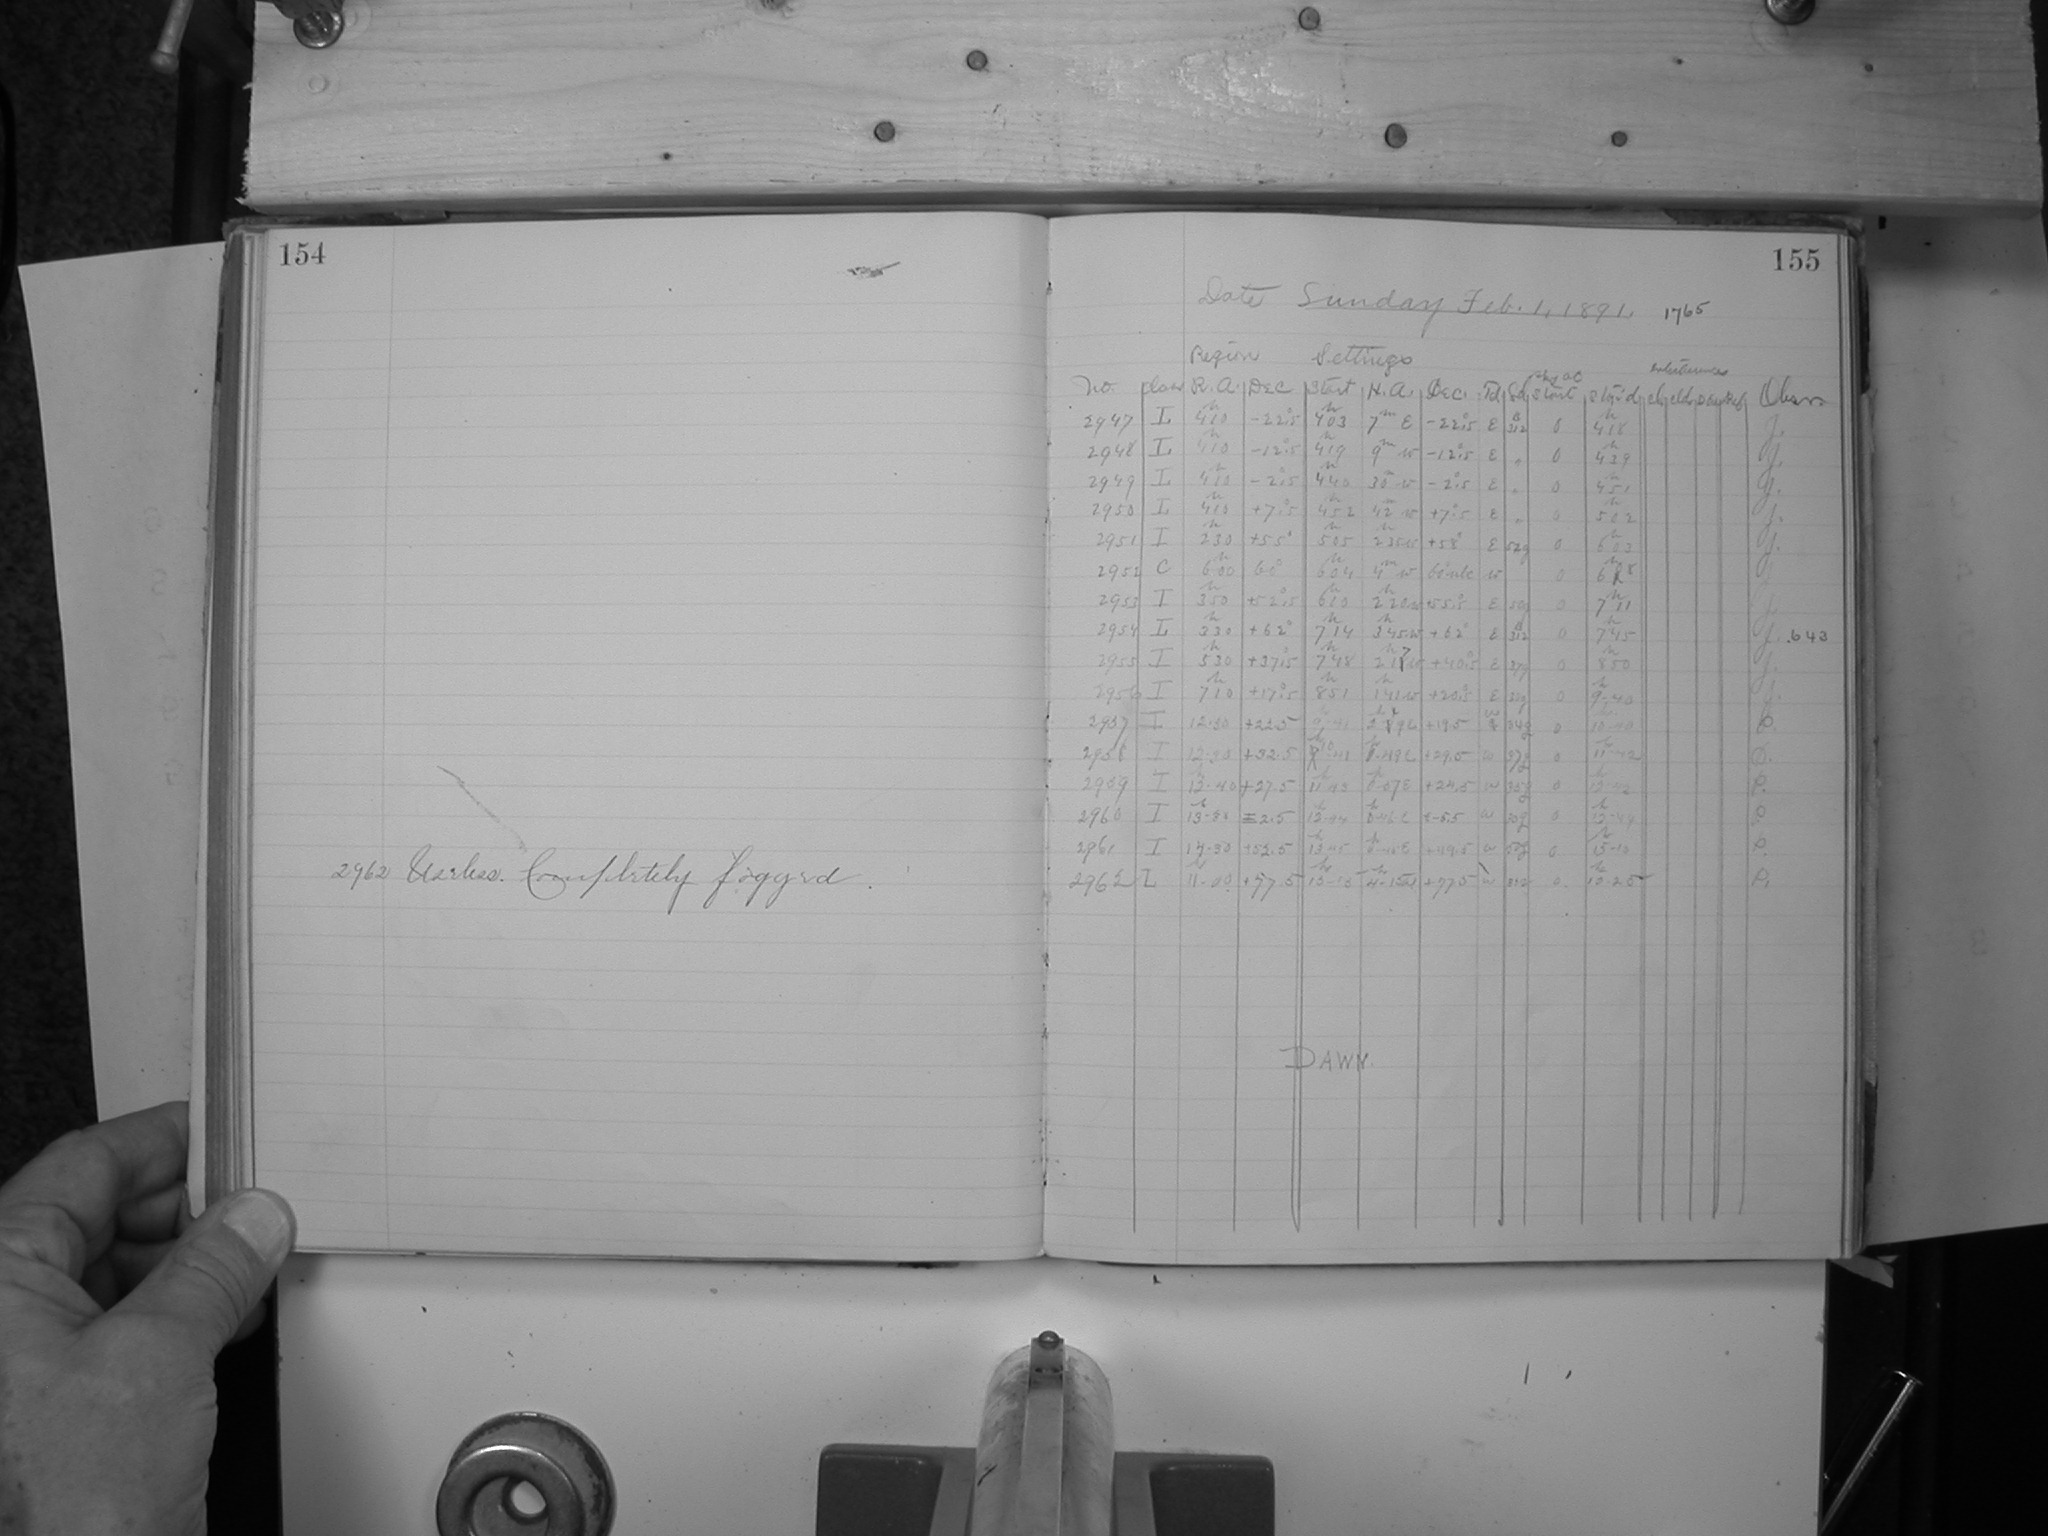 154
2962 Useless. Completely fogged.
155
Date Sunday Feb. 1, 1891. 1765
Region Settings
No. Class R.A. Dec Start H.A. Dec. Start Stop'd Observ
2947 I 410 -22.5 403 7m E -22.5 E 312 0 418 J.
2948 I 410 -12.5 419 9m w -12.5 E " 0 439 J.
2949 I 410 -2.5 440 30m w -2.5 E " 0 451 J.
2950 I 410 +7.5 452 42 w +7.5 E " 0 502 J.
2951 I 230 +55° 505 235w +58° E 52g 0 603 J.
2952 C 600 60° 604 4m w w 0 J.
2953 I 350 +52.5 610 220w +55.5 E 50g 0 711 J.
2954 I 330 +62° 714 345w +62° E 312 0 745 J. .643
2955 I 530 +37.5 748 +40.5 E 37g 0 850 J.
2956 I 710 +17.5 851 141w +20.5 E 0 9.40 J.
2957 I 12.30 +22.5 9.41 +19.5 w 34g 0 10.40 P.
2958 I 12.30 +32.5 +29.5 w 37g 0 11.42 P.
2959 I 13.40 +27.5 11.43 +24.5 w 35g 0 P.
2960 I 2.5 w 30g 0 P.
2961 I +52.5 +49.5 w 50g 0 P.
2962 I 11.00 +57.5 w 312 0 P.
DAWN.